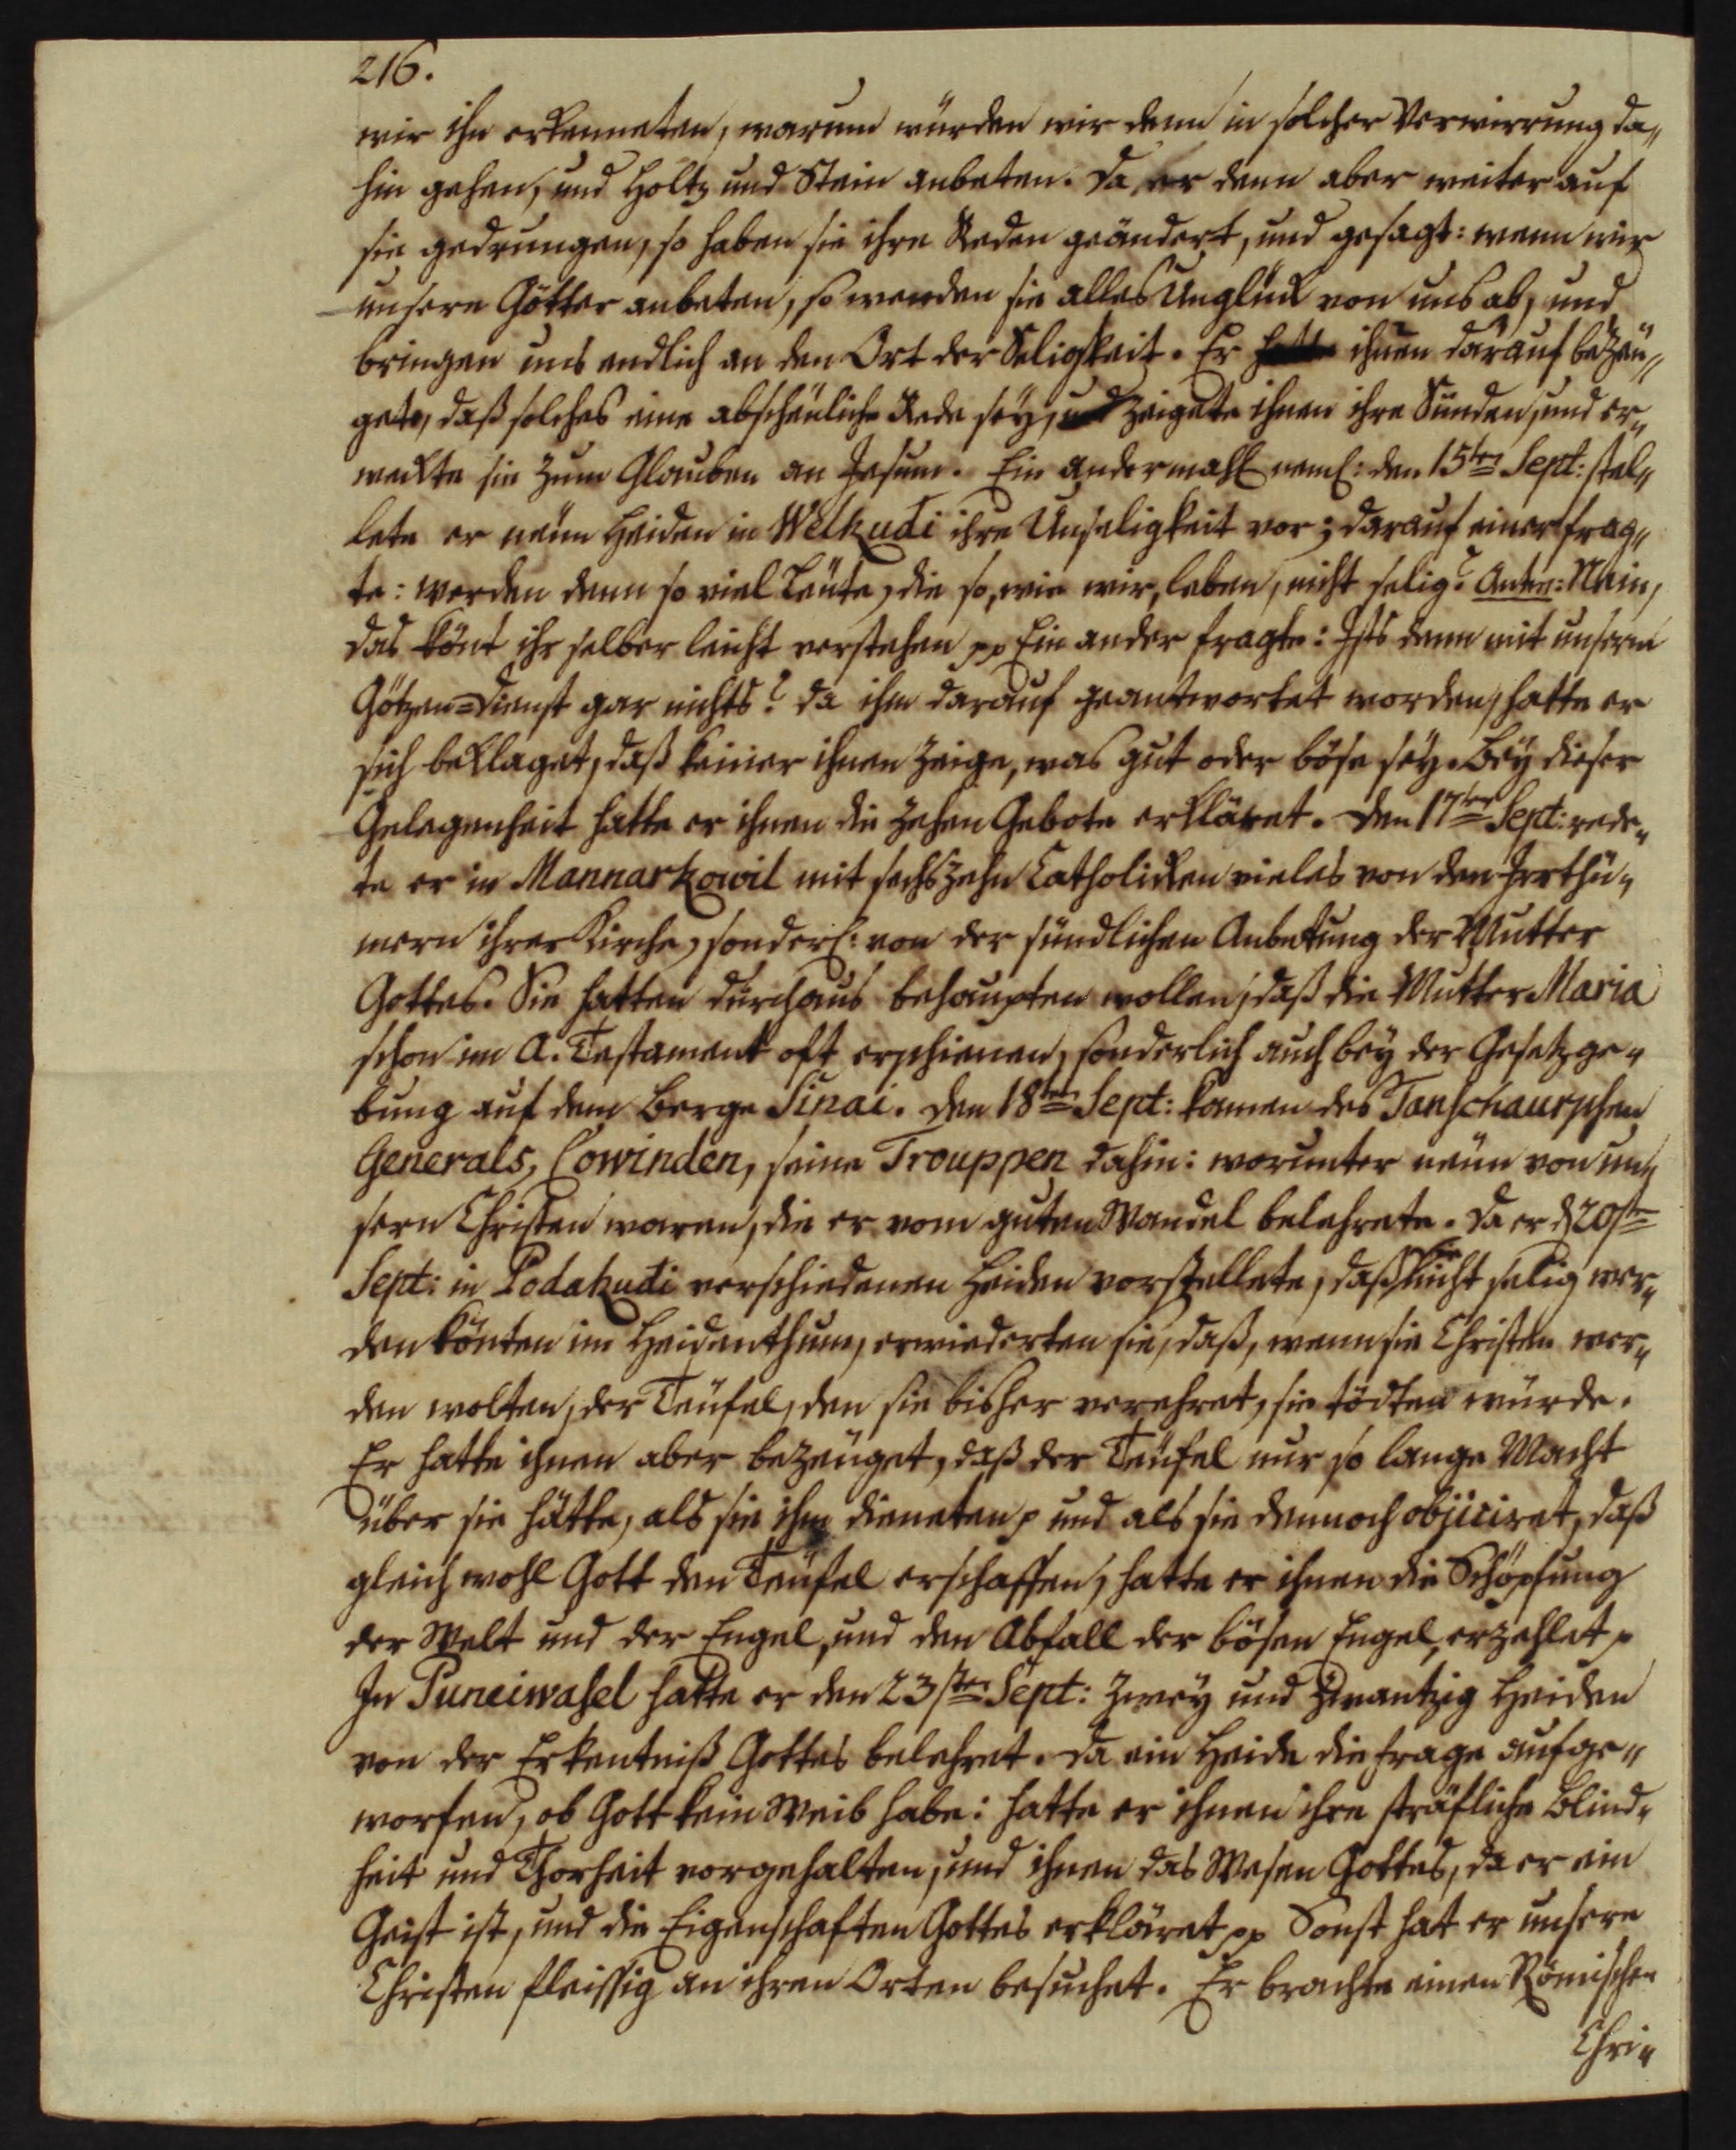 216.
wir ihn erkenneten, warum würden wir denn in solcher Verwirrung da„
hin gehen, und Holtz und Stein anbeten. Da er denn aber weiter auf
sie gedrungen, so haben sie ihre Reden geändert, und gesagt: wenn wir
unsere Götter anbeten, so wenden sie alles Unglück von uns ab, und
bringen uns endlich an den Ort der Seligkeit. Er hatte ihnen darauf bezeü„
gete, daß solches eine abscheüliche Rede sey, und zeigete ihnen ihre Sünden, und er„
weckte sie zum Glauben an Jesum. Ein andermahl neml: den 15ten Sept: stel„
lete er neün Heiden in Welkudi ihre Unseligkeit vor; darauf einer frag„
te: werden denn so viel Leüte, die so, wie wir, leben, nicht selig? Antw: Nein,
das könt ihr selber leicht verstehen pp Ein ander fragte: Ists denn mit unserm
Götzen=Dienst gar nichts? Da ihm darauf geantwortet worden, hatte er
sich beklaget, daß keiner ihnen zeige, was gut oder böse sey. Bey dieser
Gelegenheit hatte er ihnen die zehen Gebote erkläret. Den 17ten Sept: rede„
te er in Mannarkowil mit sechszehn Catholicken vieles von den Irrthü„
mern ihrer Kirche, sonderl: von der sündlichen Anbetung der Mutter
Gottes. Sie hatten durchaus behaupten wollen, daß die Mutter Maria
schon im A. Testament oft erschienen, sonderlich auch bey der Gesetzge„
bung auf dem Berge Sinai. Den 18ten Sept: kamen des Tanschaurschen
Generals, Cowinden, seine Trouppen dahin: worunter neün von un„
sern Christen waren, die er vom guten Wandel belehrete. Da er d. 20sten
Sept: in Podakudi verschiedenen Heiden vorstellete, daß sie nicht selig wer„
den könten im Heidenthum, erwiederten sie, daß, wenn sie Christen wer„
den wolten, der Teüfel, den sie bisher verehret, sie tödten würde.
Er hatte ihnen aber bezeüget, daß der Teüfel nur so lange Macht
über sie hätte, als sie ihm dieneten p und als sie dennoch objiciret, daß
gleich wohl Gott den Teüfel erschaffen, hatte er ihnen die Schöpfung
der Welt und der Engel, und den Abfall der bösen Engel, erzehlet p
In Puneiwasel hatte er den 23sten Sept: zwey und zwantzig Heiden
von der Erkentniß Gottes belehret. Da ein Heide die Frage aufge„
worfen, ob Gott kein Weib habe: hatte er ihnen ihre sträfliche Blind„
heit und Thorheit vorgehalten, und ihnen das Wesen Gottes, da er ein
Geist ist, und die Eigenschaften Gottes erkläret pp Sonst hat er unsere
Christen fleissig an ihren Orten besuchet. Er brachte einen Römischen
Chri„